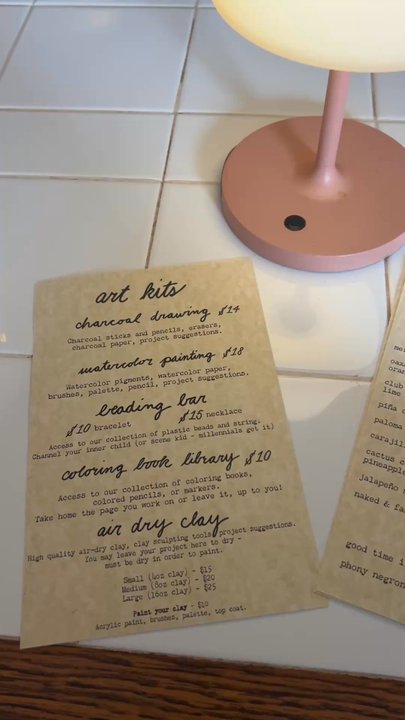 art kits
charcoal drawing $14
Charcoal sticks and pencils, erasers,
charcoal paper, project suggestions.
watercolor painting $18
Watercolor pigments, watercolor paper,
brushes, palette, pencil, project suggestions.
beading bar
$10 bracelet $15 necklace
Access to our collection of plastic beads and string.
Channel your inner child (or scene kid - millennials get it)
coloring book library $10
Access to our collection of coloring books,
colored pencils, or markers.
Take home the page you work on or leave it, up to you!
air dry clay
High quality air-dry clay, clay sculpting tools, project suggestions.
You may leave your project here to dry -
must be dry in order to paint.
Small (4oz clay) - $15
Medium (8oz clay) - $20
Large (16oz clay) - $25
Paint your clay - $10
Acrylic paint, brushes, palette, top coat.
club
lime
piña
paloma
cactus
pineapple
jalapeño
naked & fa
good time
phony negron